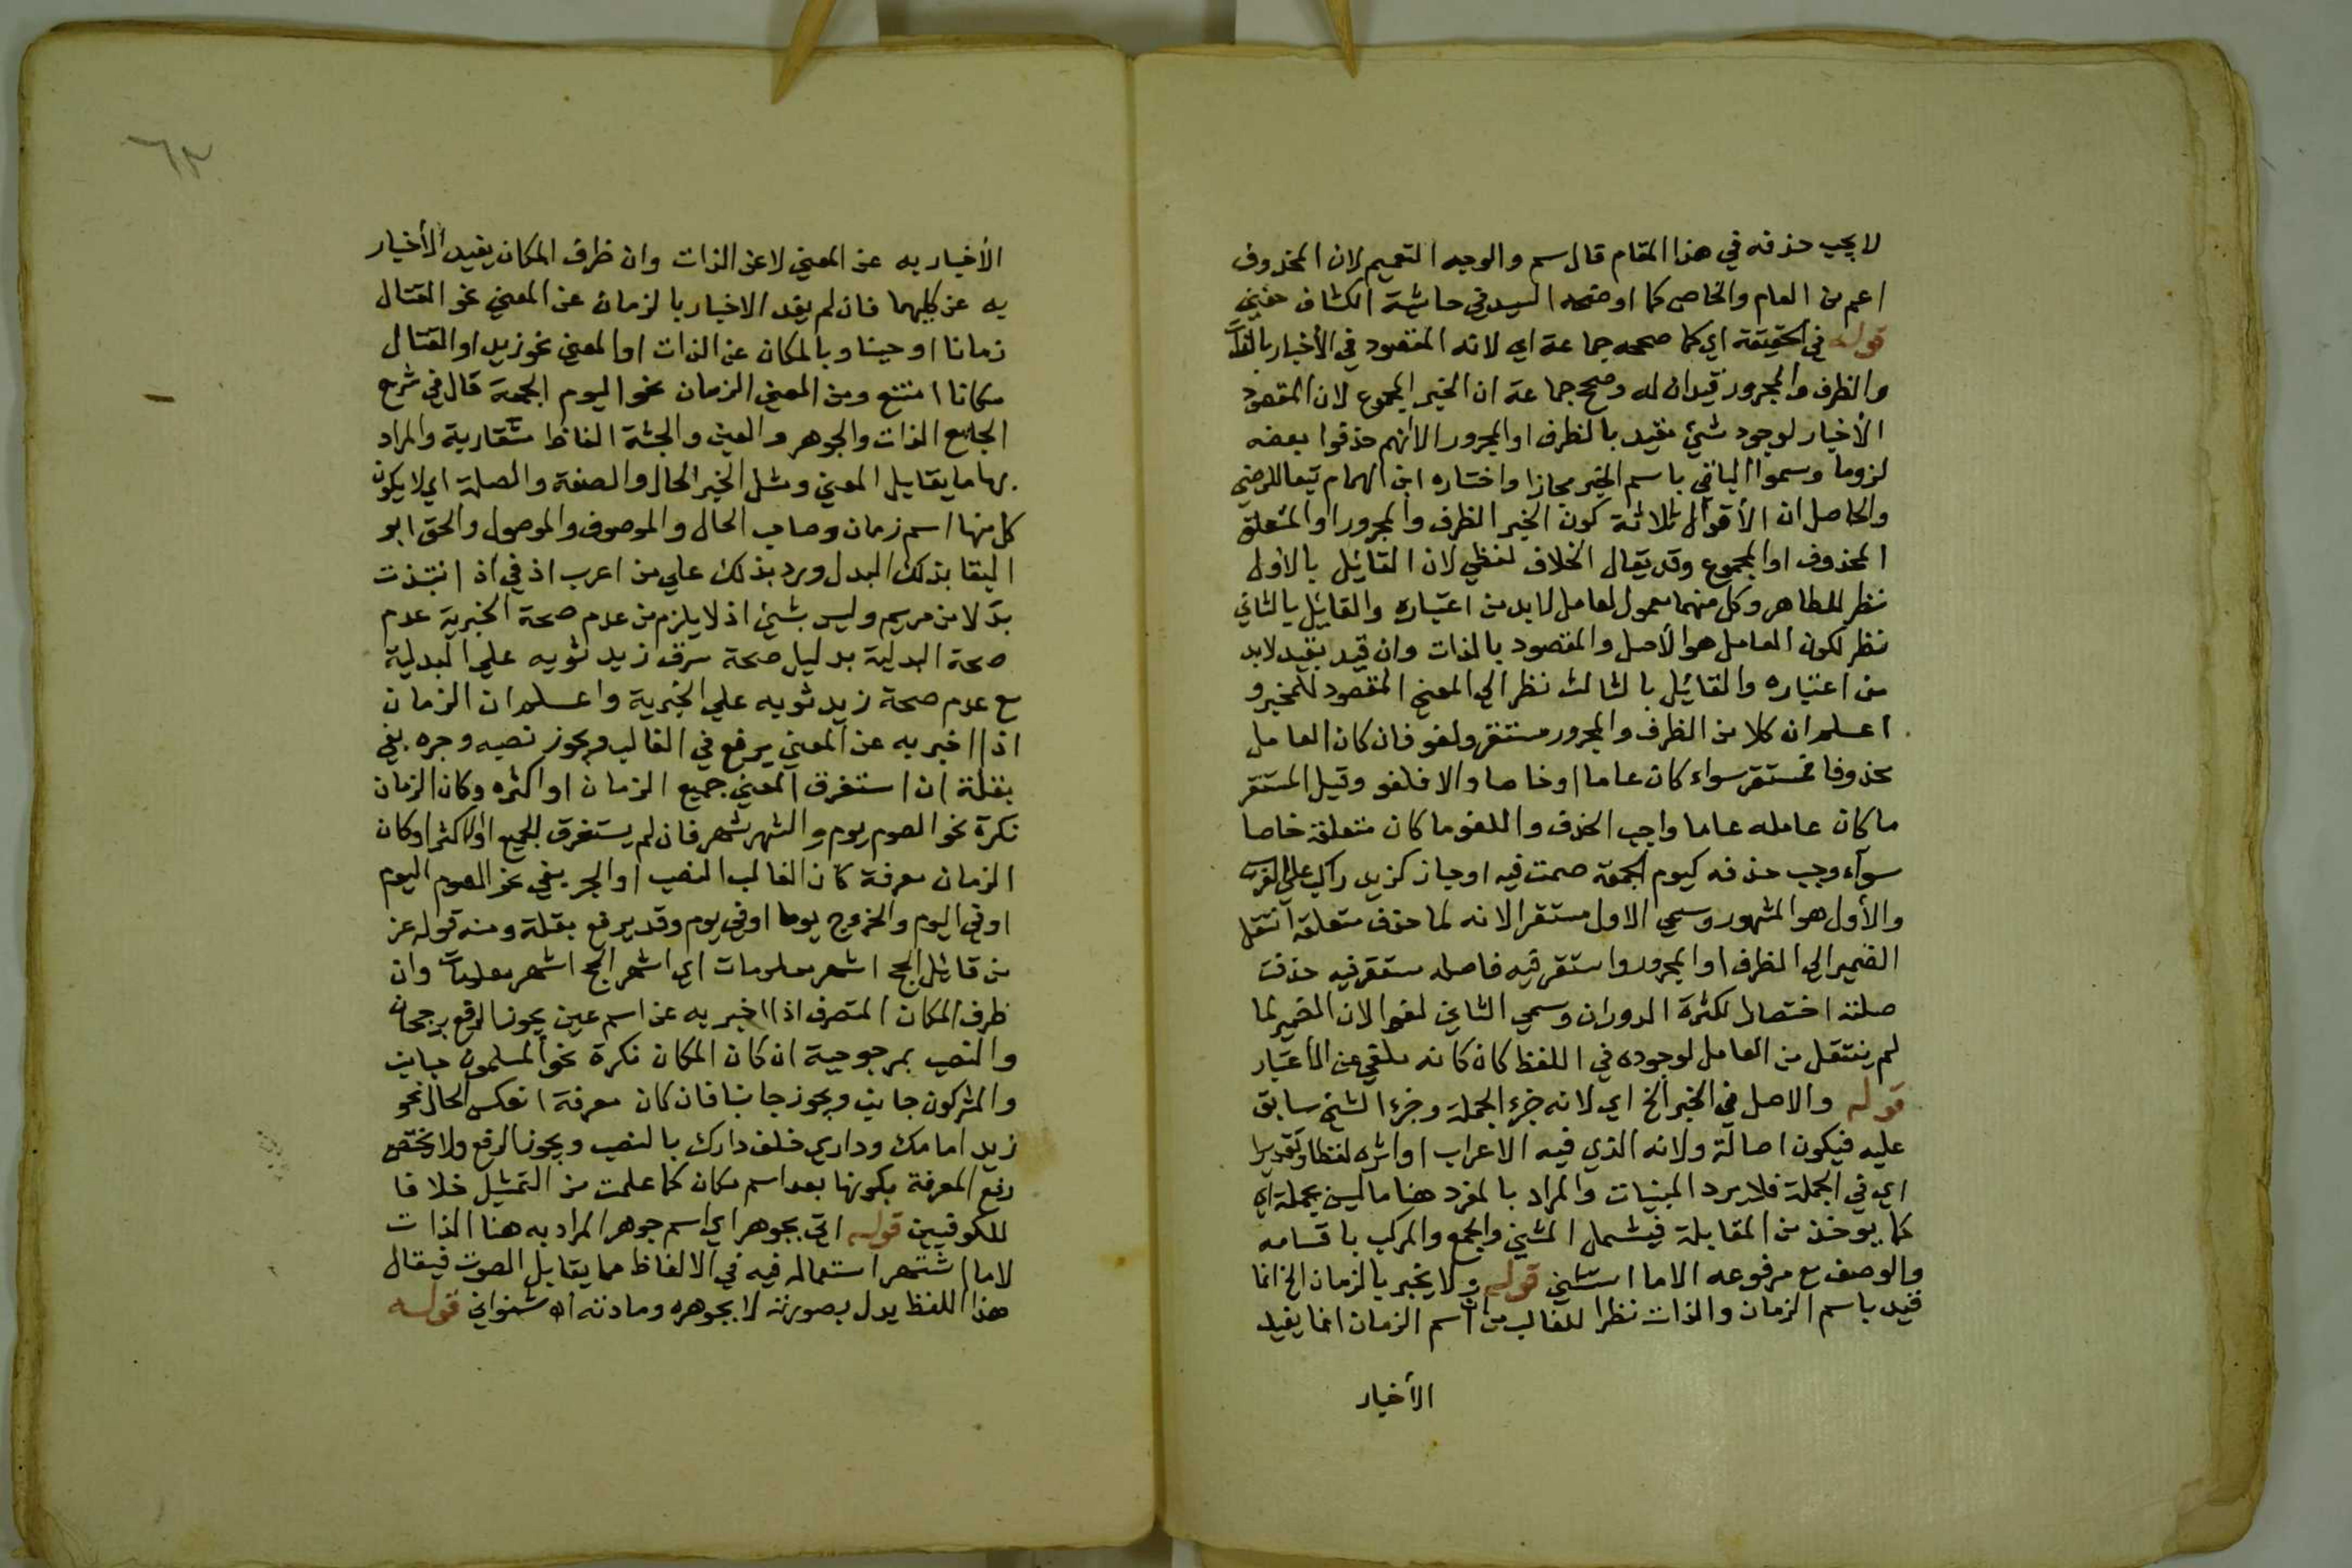 لا يجب حذفه في هذا المقام قال سم والوجه التعميم لان المحذوف
اعم من العام والخاص كما اوضحه السيد في حاشية الكشاف حفني
قوله في الحقيقة اي كما صححه جماعة اي لانه المقصود في الأخبار بالذات
والظرف والمجرور قيدان له وصحح جماعة ان الخبر المجموع لان المقصود
الأخبار لوجود شئ مقيد بالظرف او المجرور الا انهم حذفوا بعضه
لزوما وسموا الباقي باسم الخبر مجازا واختاره ابن الهمام تبعا للرضي
والحاصل ان الأقوال ثلاثة كون الخبر الظرف والمجرور او المتعلق
المحذوف او المجموع وقد يقال الخلاف لفظي لان القائل بالأول
نظر للظاهر وكل منهما معمول لعامل لا بد من اعتباره والقايل بالثاني
نظر لكون العامل هو الأصل والمقصود بالذات وان قيد بقيد لا بد
من اعتباره والقائل بالثالث نظر الي المعني المقصود للمخبر و
اعلم ان كلا من الظرف والمجرور مستقر ولغو فان كان العامل
محذوفا فمستقر سواء كان عاما او خاصا والا فلغو وقيل المستقر
ما كان عامله عاما واجب الحذف واللغو ما كان متعلقه خاصا
سوآء وجب حذفه كيوم الجمعة صمت فيه او جاز كزيد راكب علي الفرس
والأول هو المشهور وسمي الاول مستقرا لانه لما حذف متعلقه انتقل
الضمير الي الظرف او المجرور واستقر فيه فاصله مستقر فيه حذفت
صلته اختصارا لكثرة الدوران وسمي الثاني لغوا لان الضمير لما
لم ينتقل من العامل لوجوده في اللفظ كان كانه ملغي عن الأعتبار
قوله والاصل في الخبر الخ اي لانه جزء الجملة وجزء الشئ سابق
عليه فيكون اصالة ولانه الذي فيه الاعراب او اثره لفظا وتقديرا
اي في الجملة فلا يرد المبنيات والمراد بالمفرد هنا ما ليس بجملة اي
كما يوخذ من المقابلة فيشمل المثني والجمع والمركب باقسامه
والوصف مع مرفوعه الا ما استثني قوله ولا يخبر بالزمان الخ انما
قيد باسم الزمان والذات نظرا للغالب من ان اسم الزمان انما يفيد
الأخبار
٦٣
الأخبار به عن المعني لا عن الذات وان ظرف المكان يفيد الأخبار
به عن كليهما فان لم يفد الاخبار بالزمان عن المعني نحو القتال
زمانا او حينا وبالمكان عن الذات او المعني نحو زيد او القتال
مكانا امتنع ومن المعني الزمان نحو اليوم الجمعة قال في شرح
الجامع الذات والجوهر والعين والجثة الفاظ متقاربة والمراد
بها ما يقابل المعني ومثل الخبر الحال والصفة والصلة اي لا يكون
كل منها اسم زمان وصاحب الحال والموصوف والموصول والحق ابو
البقا بذلك البدل ورد بذلك علي من اعرب اذ في اذ انتبذت
بدلا من مريم وليس بشئ اذ لا يلزم من عدم صحة الخبرية عدم
صحة البدلية بدليل صحة سرق زيد ثوبه علي البدلية
مع عدم صحة زيد ثوبه علي الخبرية واعلم ان الزمان
اذا اخبر به عن المعني يرفع في الغالب ويجوز نصبه وجره بفي
بقلة ان استغرق المعني جميع الزمان او اكثره وكان الزمان
نكرة نحو الصوم يوم والشهر شهر فان لم يستغرق الجميع او الاكثر او كان
الزمان معرفة كان الغالب النصب او الجر بفي نحو الصوم اليوم
او في اليوم والخروج يوما او في يوم وقد يرفع بقلة ومنه قوله عز
من قائل الحج اشهر معلومات اي اشهر الحج اشهر معلومات وان
ظرف المكان المتصرف اذا اخبر به عن اسم عين يجوز الرفع برجحان
والنصب بمرجوحية ان كان المكان نكرة نحو المسلمون جانب
والمشركون جانب ويجوز جانبا فان كان معرفة انعكس الحال نحو
زيد امامك وداري خلف دارك بالنصب ويجوز الرفع ولا يختص
رفع المعرفة بكونها بعد اسم مكان كما علمت من التمثيل خلافا
للكوفيين قوله اتي بجوهر اي اسم جوهر المراد به هنا الذات
لا ما اشتهر استعماله فيه في الالفاظ مما يقابل الصوت فيقال
هذا اللفظ يدل بصورته لا بجوهره ومادته اه شنواني قوله